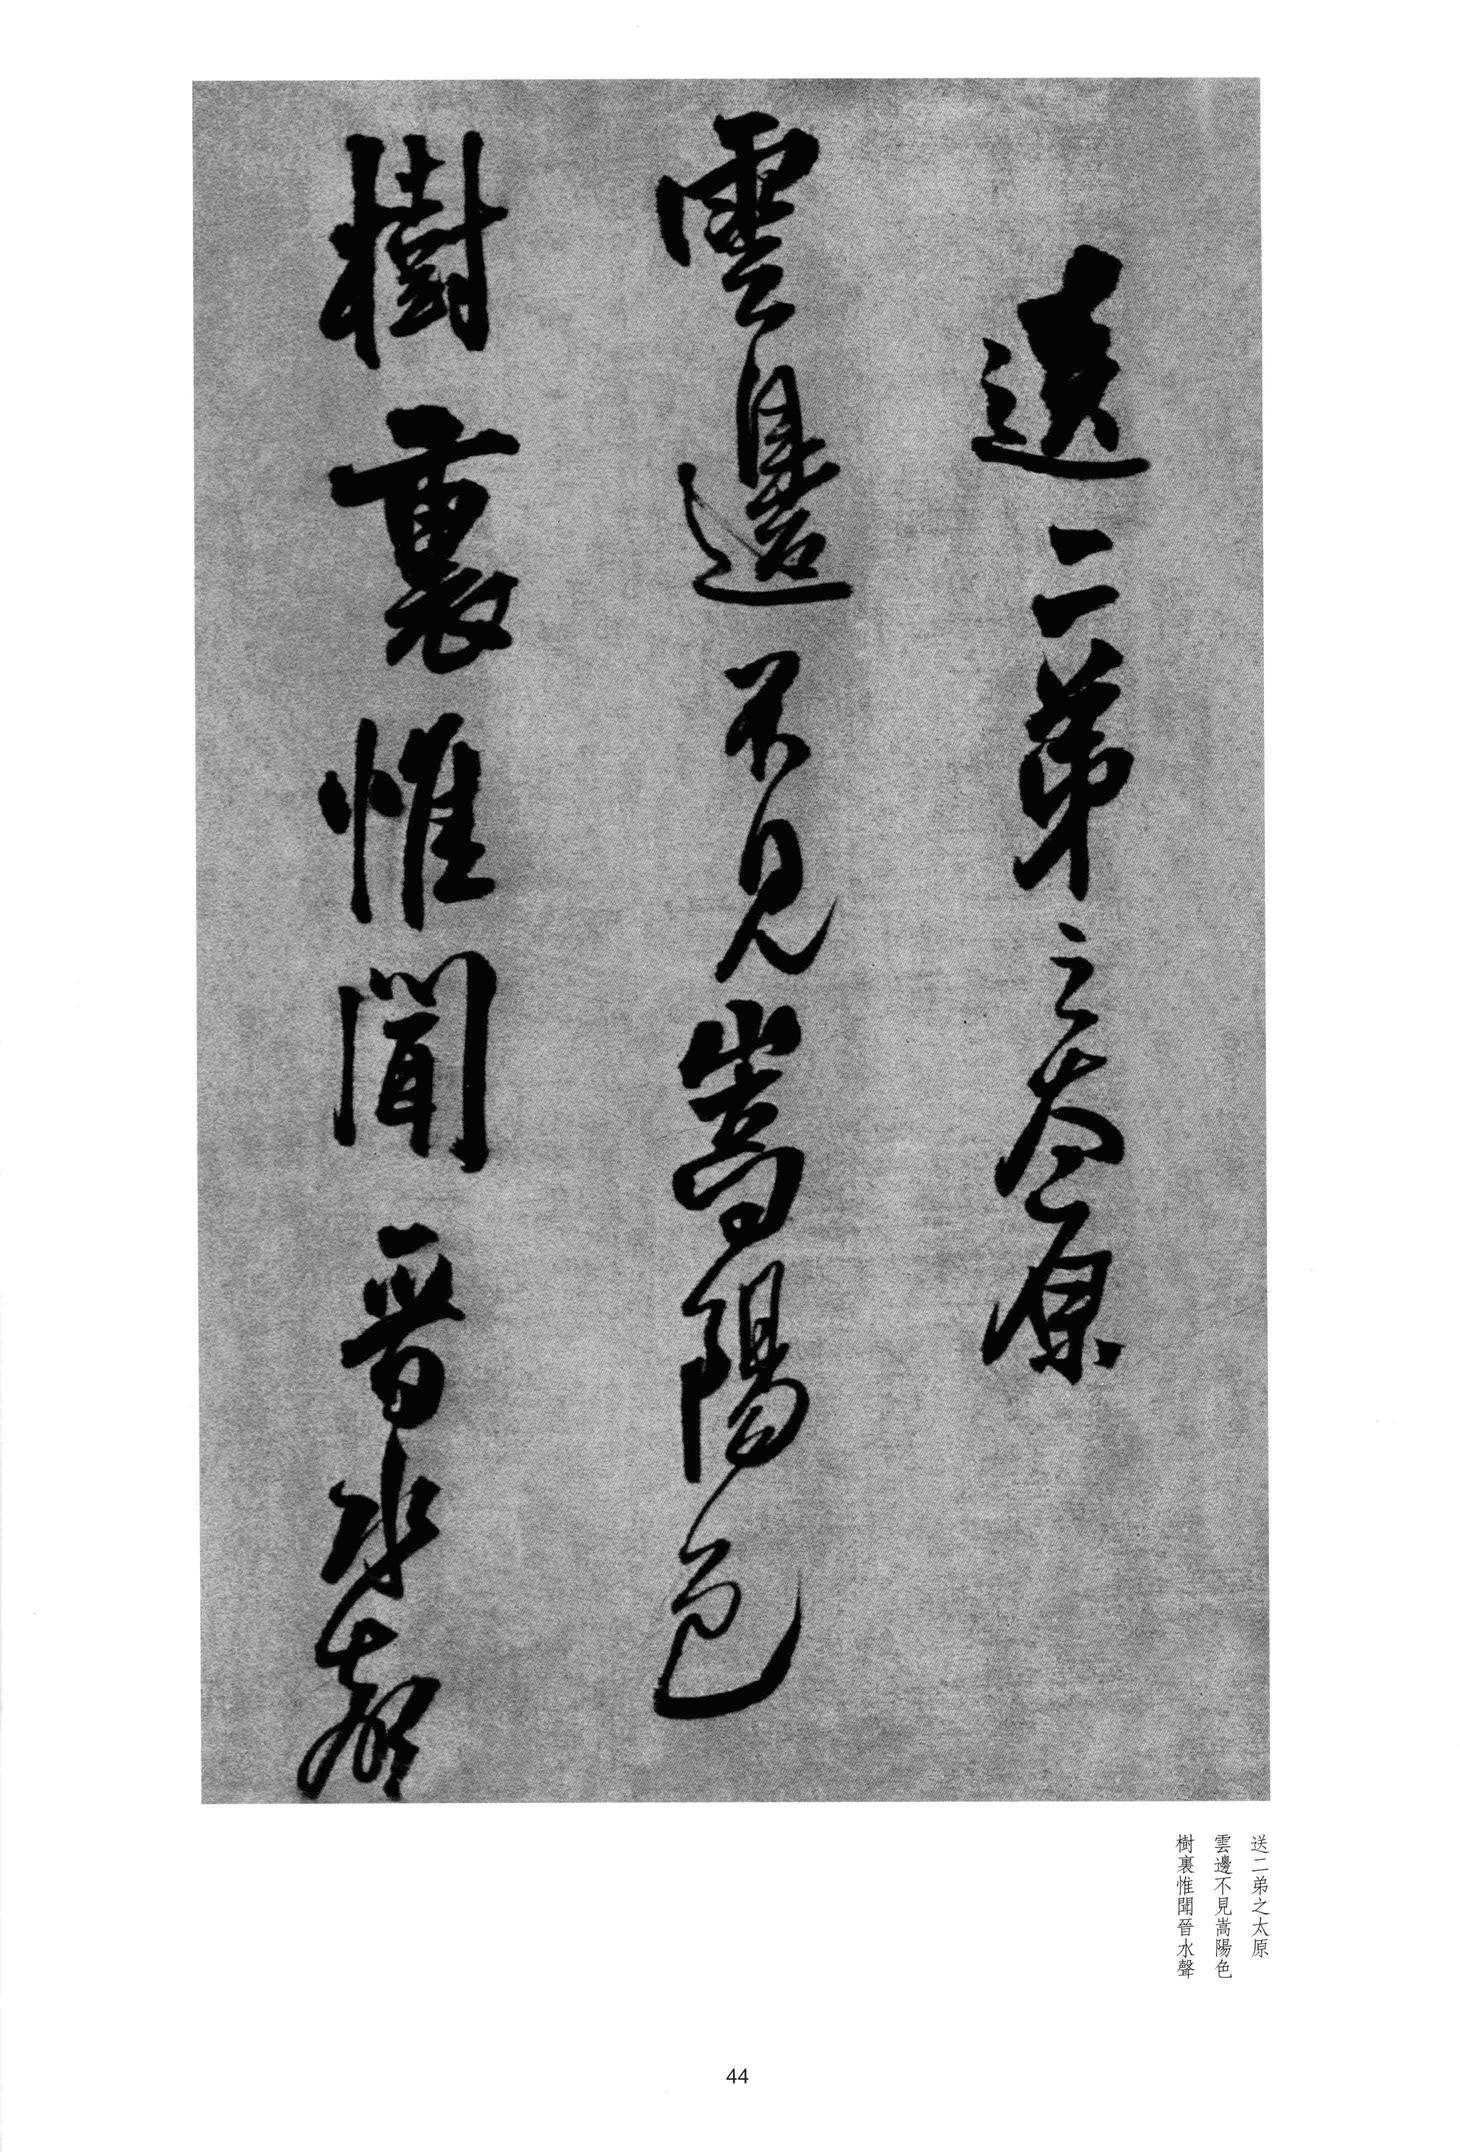 送二弟之太原
雲邊不見嵩陽色
樹裏惟聞晉水聲
送二弟之太原
雲邊不見嵩陽色
樹裏惟聞晉水聲
44